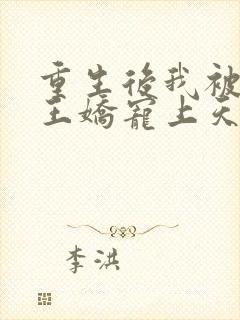 重生後我被
王嬌寵上天
李洪